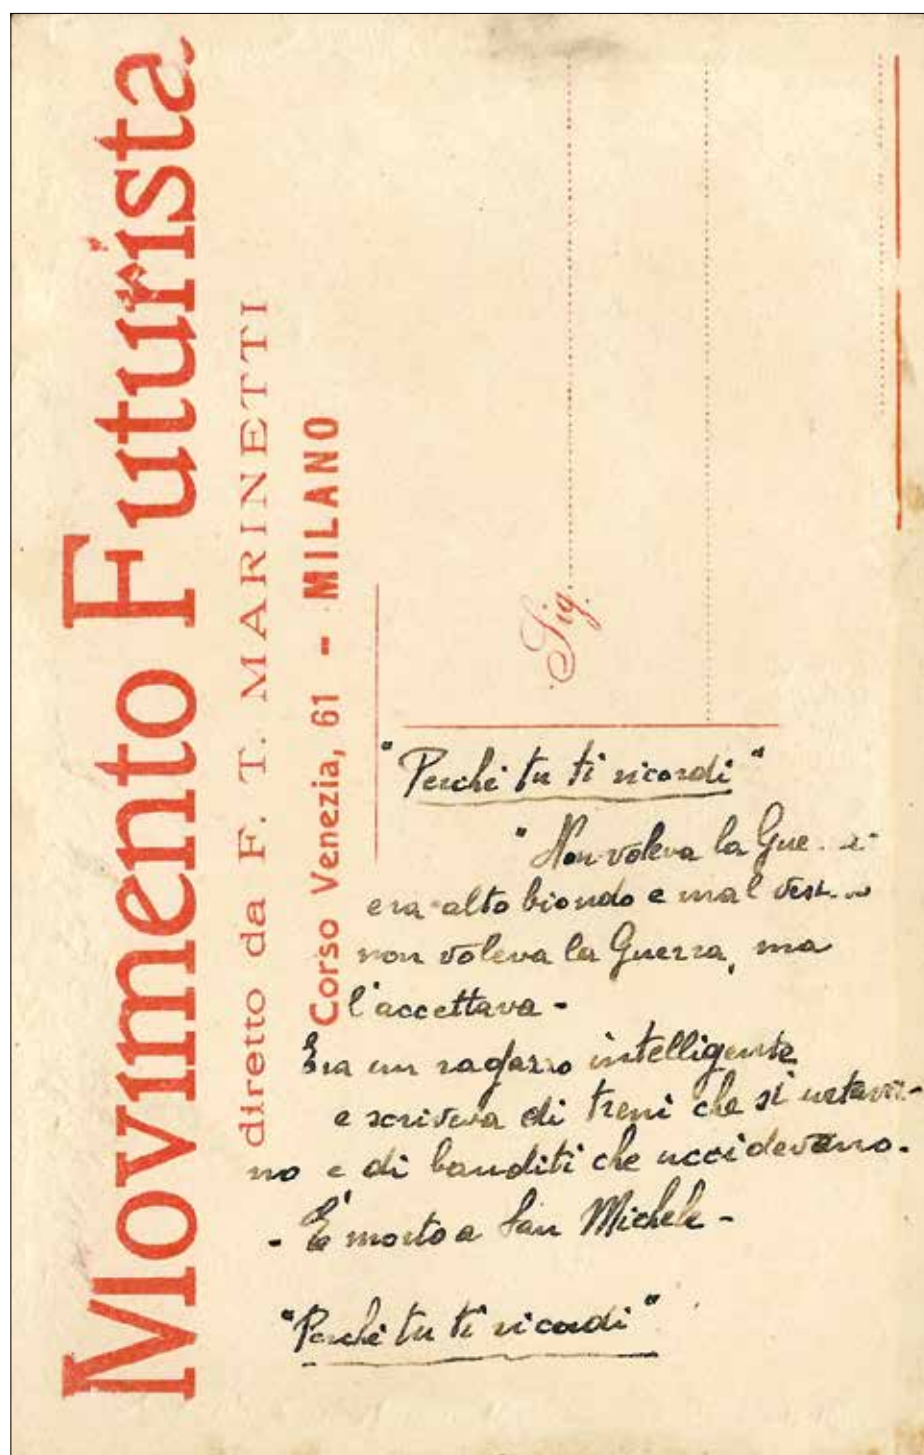 Movimento Futurista
diretto da F. T. MARINETTI
Corso Venezia, 61 - MILANO
Sig.
"Perchè tu ti ricordi"
"Non voleva la
era alto biondo e mal
non voleva la Guerra, ma
l'accettava -
Era un ragazzo intelligente
e scriveva di treni che si urtava-
no e di banditi che uccidevano.
- È morto a San Michele -
"Perchè tu ti ricordi"